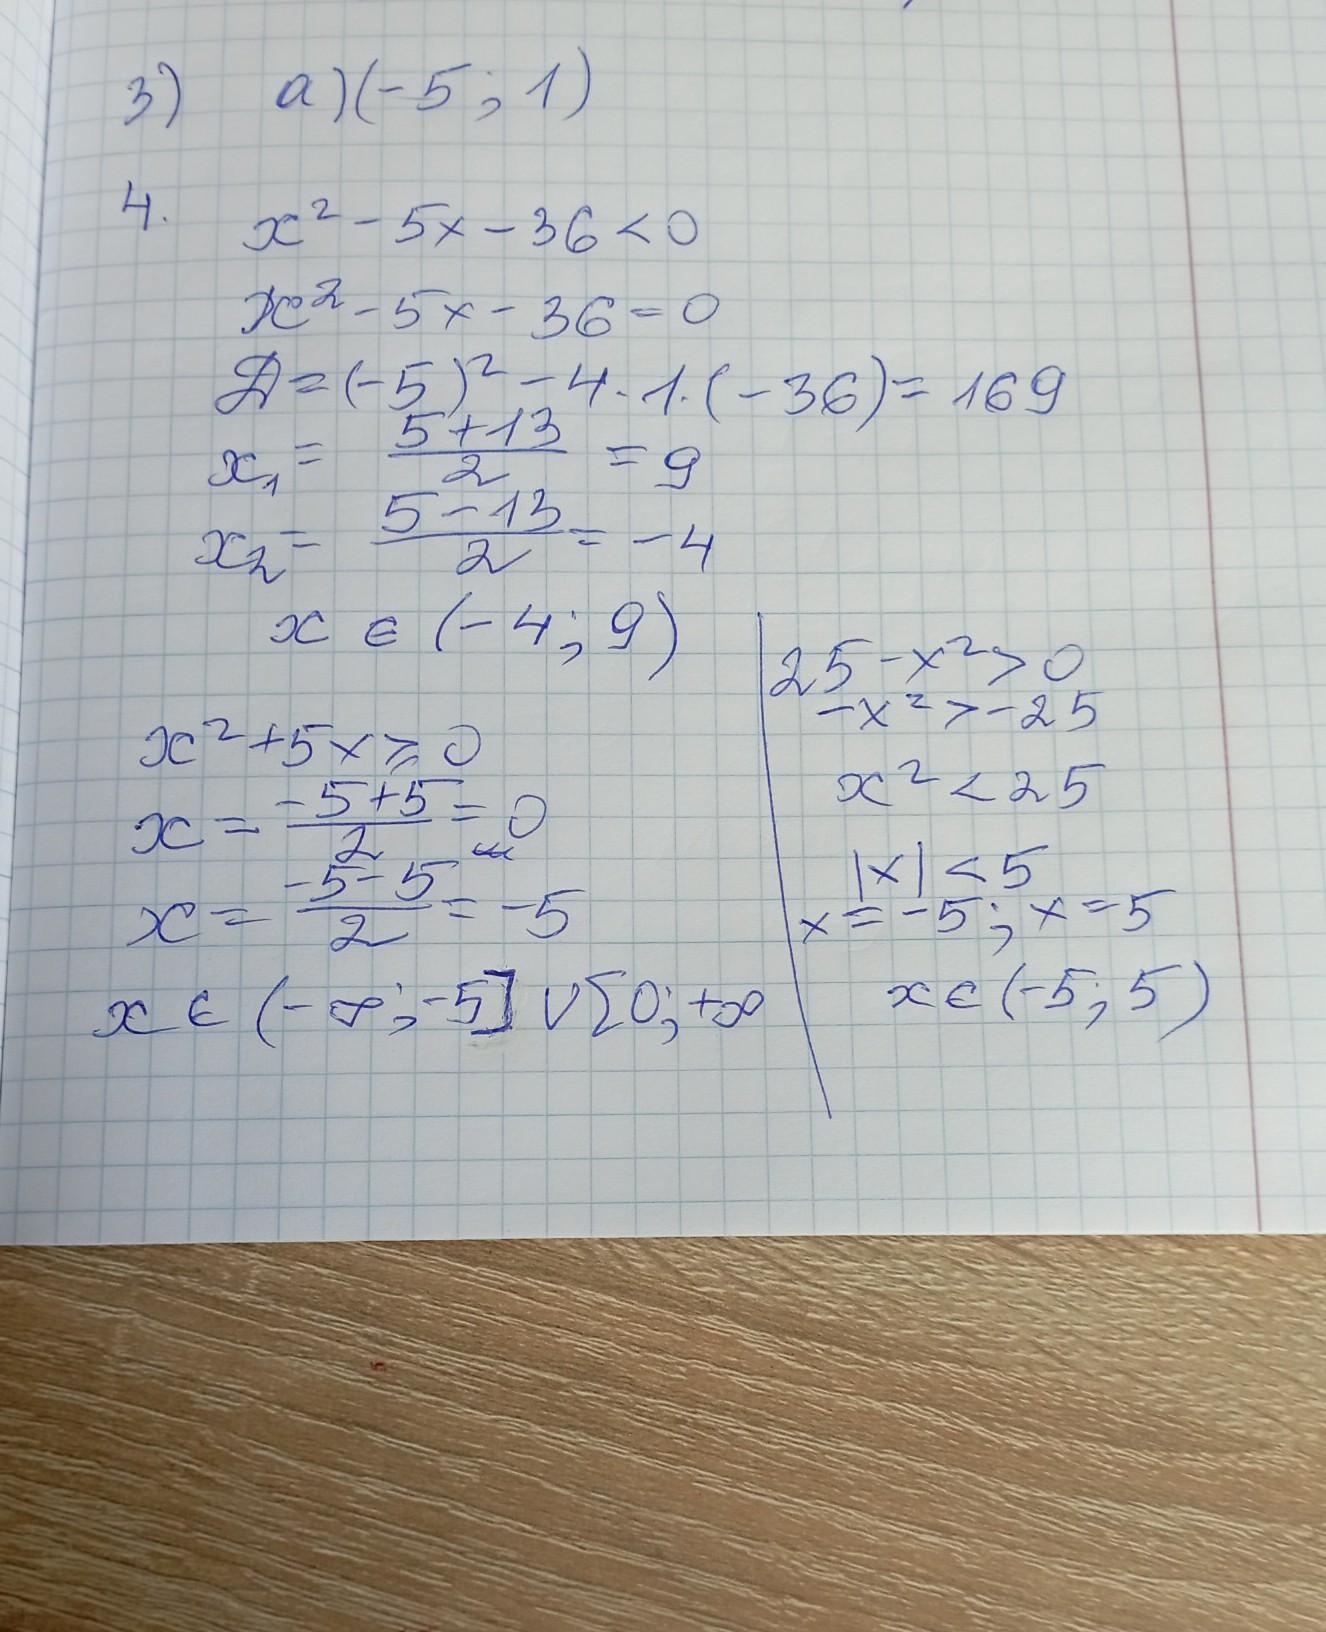 3) a) (-5; 1)
4. x² - 5x - 36 < 0
x² - 5x - 36 = 0
Д = (-5)² - 4 · 1 · (-36) = 169
x₁ = (5+13)/2 = 9
x₂ = (5-13)/2 = -4
x ∈ (-4; 9)
x² + 5x ⩾ 0
x = (-5+5)/2 = 0
x = (-5-5)/2 = -5
x ∈ (-∞; -5] ∪ [0; +∞
25 - x² > 0
-x² > -25
x² < 25
|x| < 5
x = -5; x = 5
x ∈ (-5; 5)